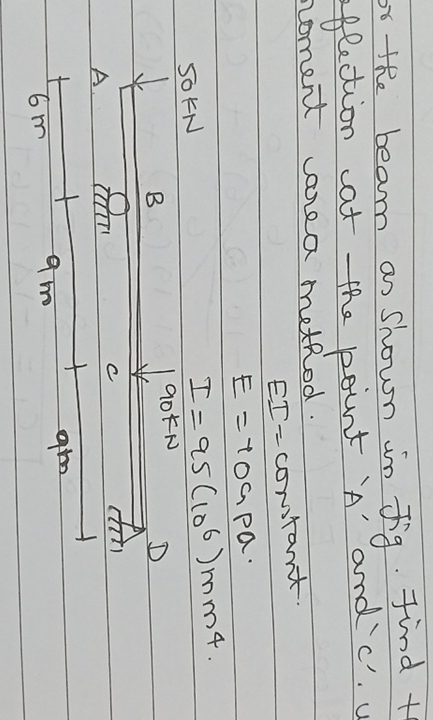 or the beam as shown in fig. Find th
eflection at the point 'A' and 'C'. u
moment area method.
EI = constant.
E = 70Gpa.
I = 95(10⁶)mm⁴.
50KN
90KN
A
B
C
D
6m
9m
9m